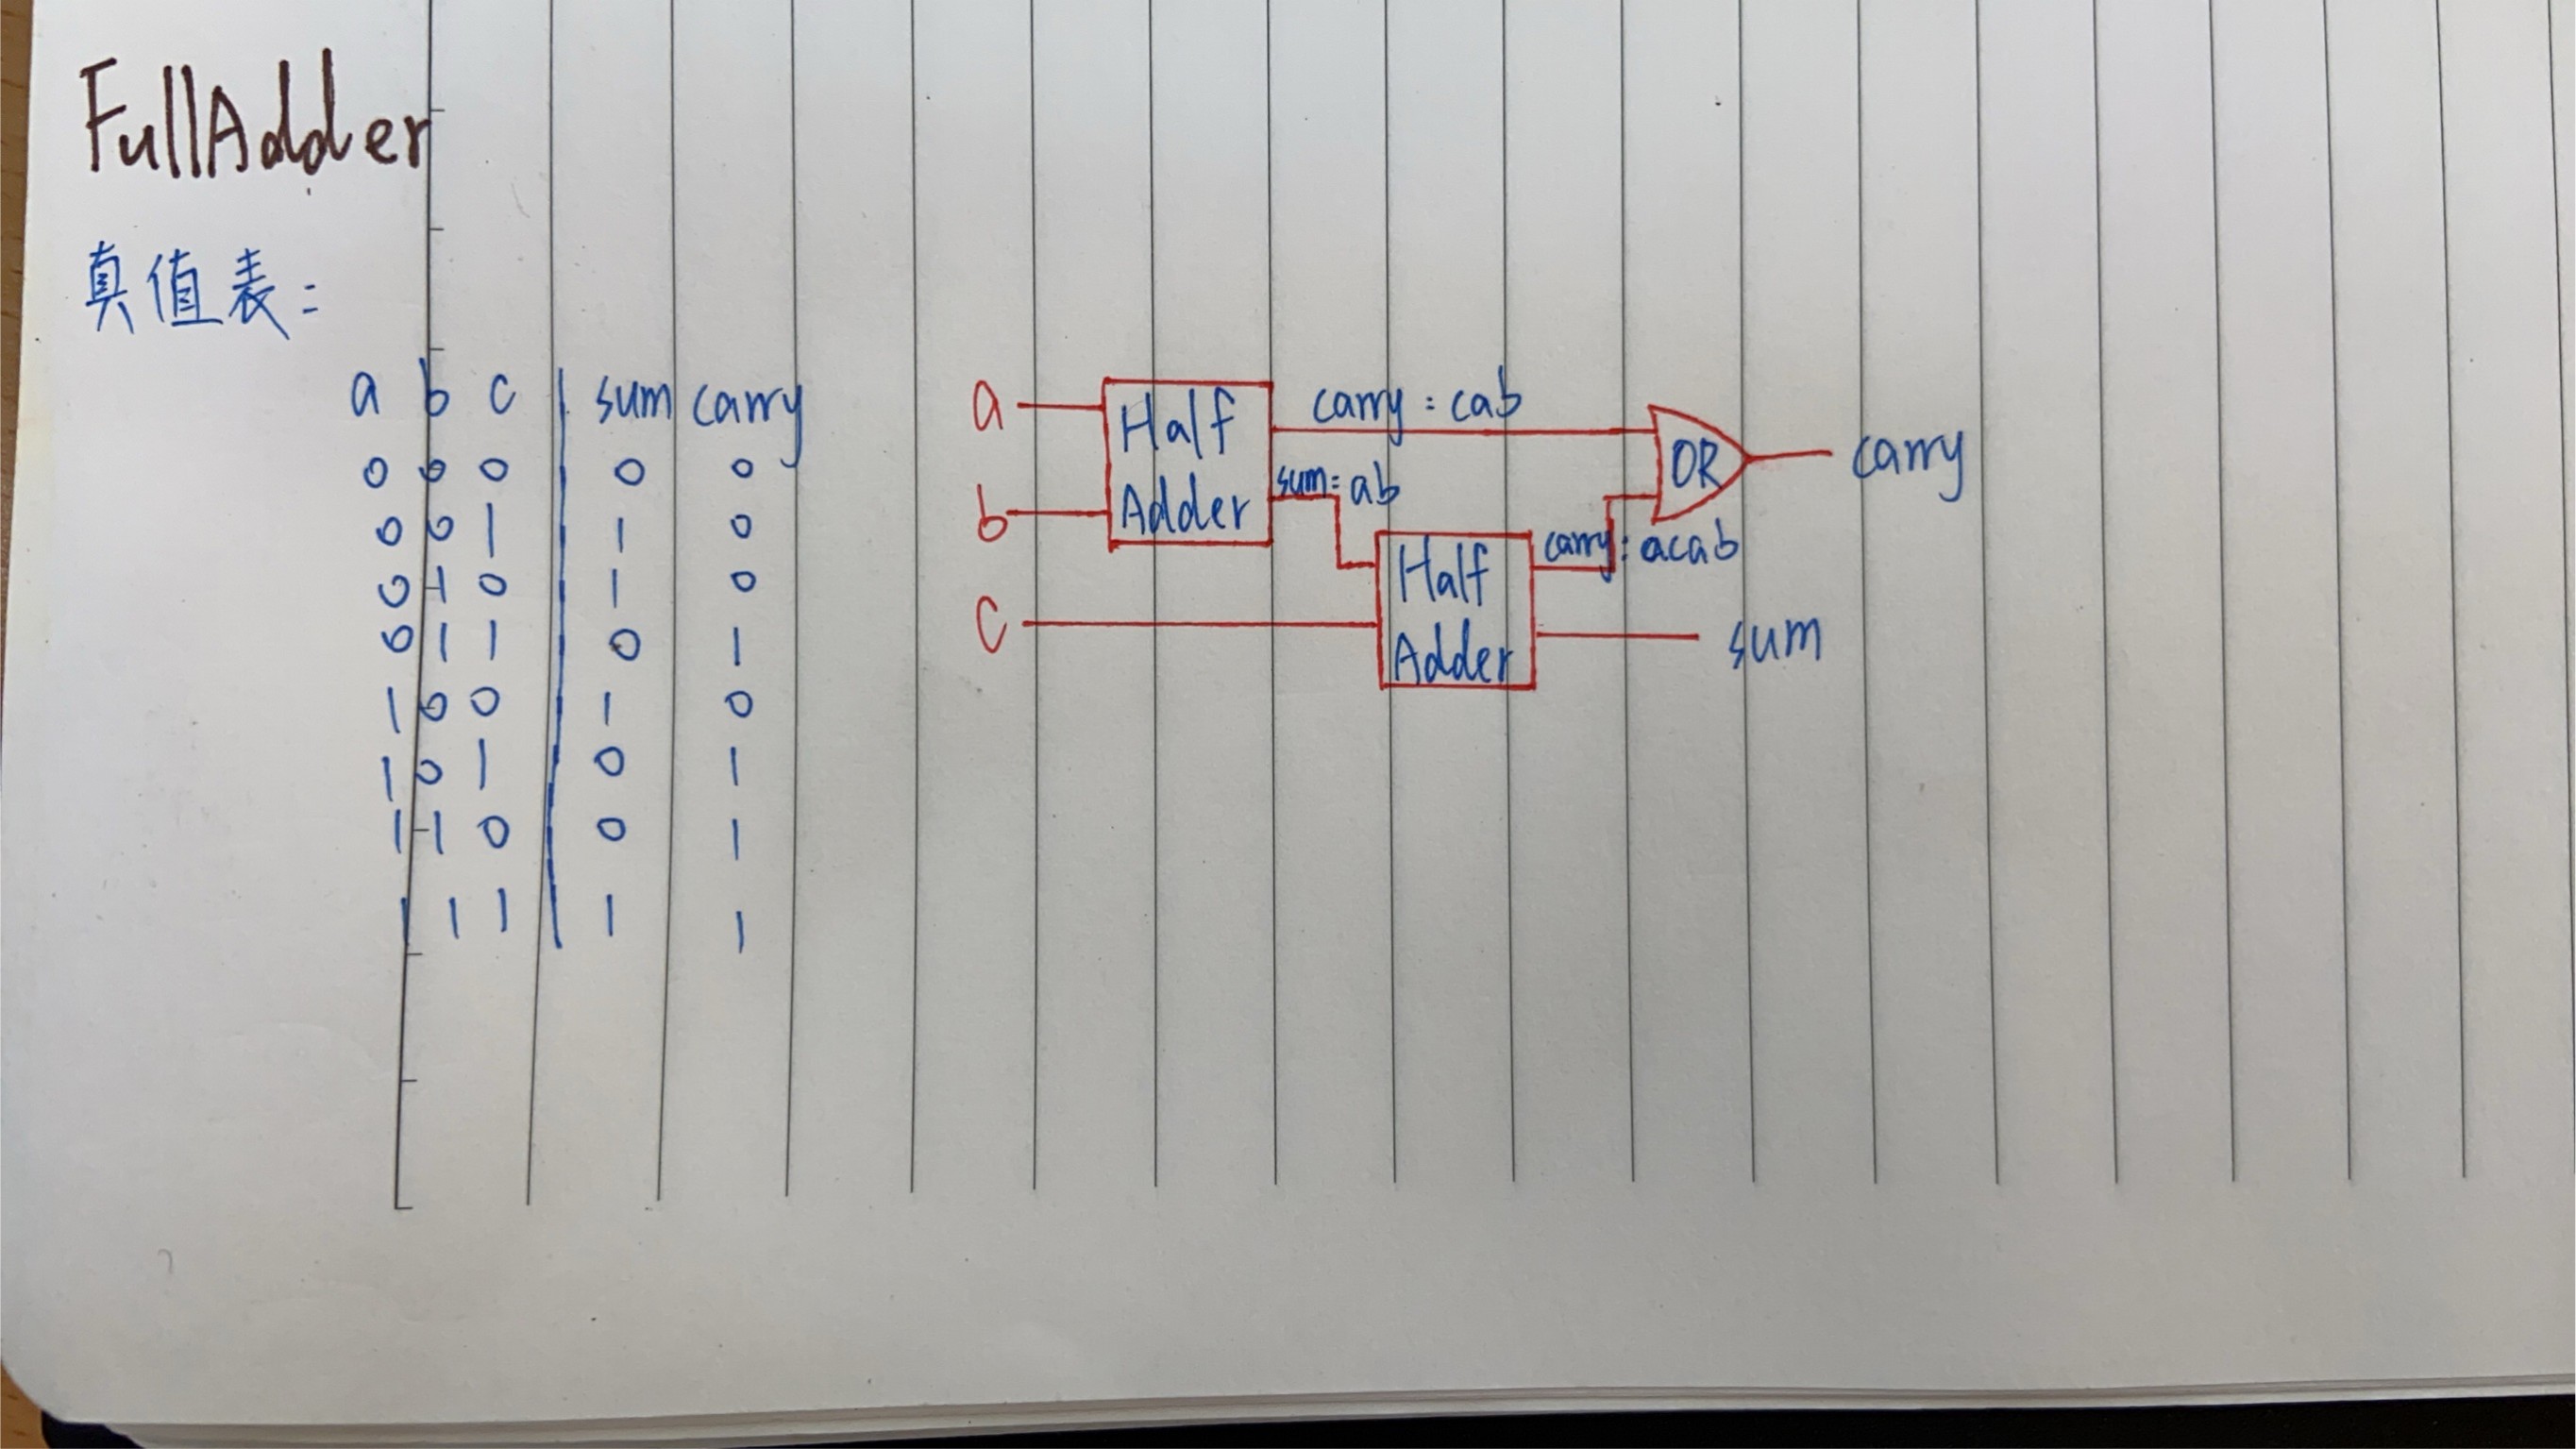 FullAdder
真值表:
a b c | sum carry
0 0 0 | 0 0
0 0 1 | 1 0
0 1 0 | 1 0
0 1 1 | 0 1
1 0 0 | 1 0
1 0 1 | 0 1
1 1 0 | 0 1
1 1 1 | 1 1
a
b
c
Half
Adder
carry: cab
sum: ab
Half
Adder
carry: acab
OR
carry
sum